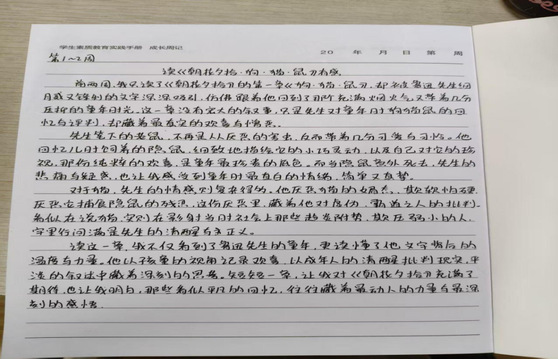 学生素质教育实践手册 成长周记
20 年 月 日 第 周
第1~2周
读《朝花夕拾·狗·猫·鼠》有感
前两周,我只读了《朝花夕拾》的第一篇《狗·猫·鼠》,却被鲁迅先生细
腻又锋利的文字深深吸引,仿佛跟着他回到了那段充满烟火气,又带着几分
压抑的童年时光。这一篇没有宏大的叙事,只是先生对童年时狗猫鼠的回
忆与评判,却藏着最真实的欢喜与情恶。
先生笔下的老鼠,不再是人人厌恶的害虫,反而带着几分可爱与可怜。他
回忆儿时饲养的隐鼠,细致地描绘它的小巧灵动,以及自己对它的珍
视,那份纯粹的欢喜,是童年最珍贵的底色。而当隐鼠意外死去,先生的
悲痛与疑惑,也让我感受到童年时最真白的情绪,简单又真挚。
对于猫,先生的情感则复杂得多。他厌恶猫的媚态、欺软怕硬,
厌恶它捕食隐鼠的残忍,这份厌恶里,藏着他对虚伪、霸道之人的批判。
看似在说猫,实则在影射当时社会上那些趋炎附势、欺压弱小的人,
字里行间满是先生的清醒与正义。
读这一篇,我不仅看到了鲁迅先生的童年,更读懂了他文字背后的
温度与力量。他以孩童的视角记录欢喜,以成年人的清醒批判现实,平
淡的叙述中藏着深刻的思考。短短一篇,让我对《朝花夕拾》充满了
期待,也让我明白,那些看似平凡的回忆,往往藏着最动人的力量与最深
刻的感悟。